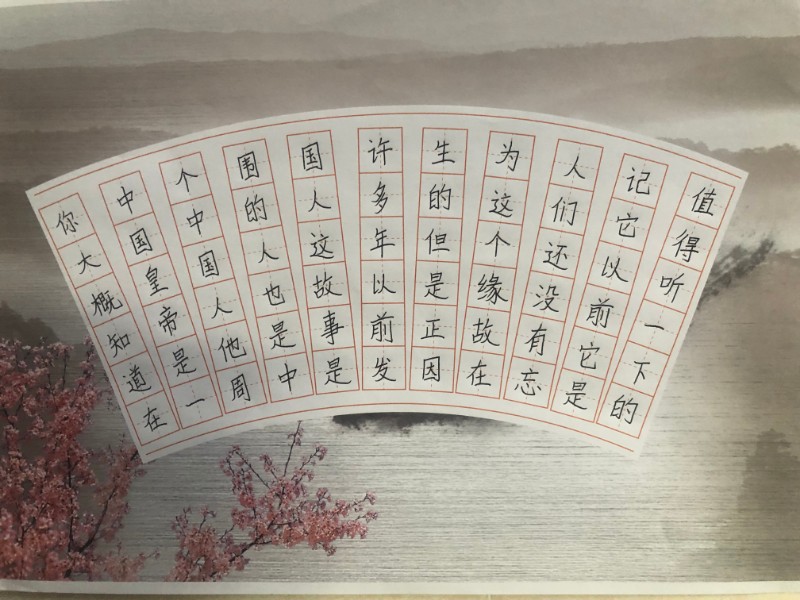 你大概知道在
中国皇帝是一
个中国人他周
围的人也是中
国人这故事是
许多年以前发
生的但是正因
为这个缘故在
人们还没有忘
记它以前它是
值得听一下的